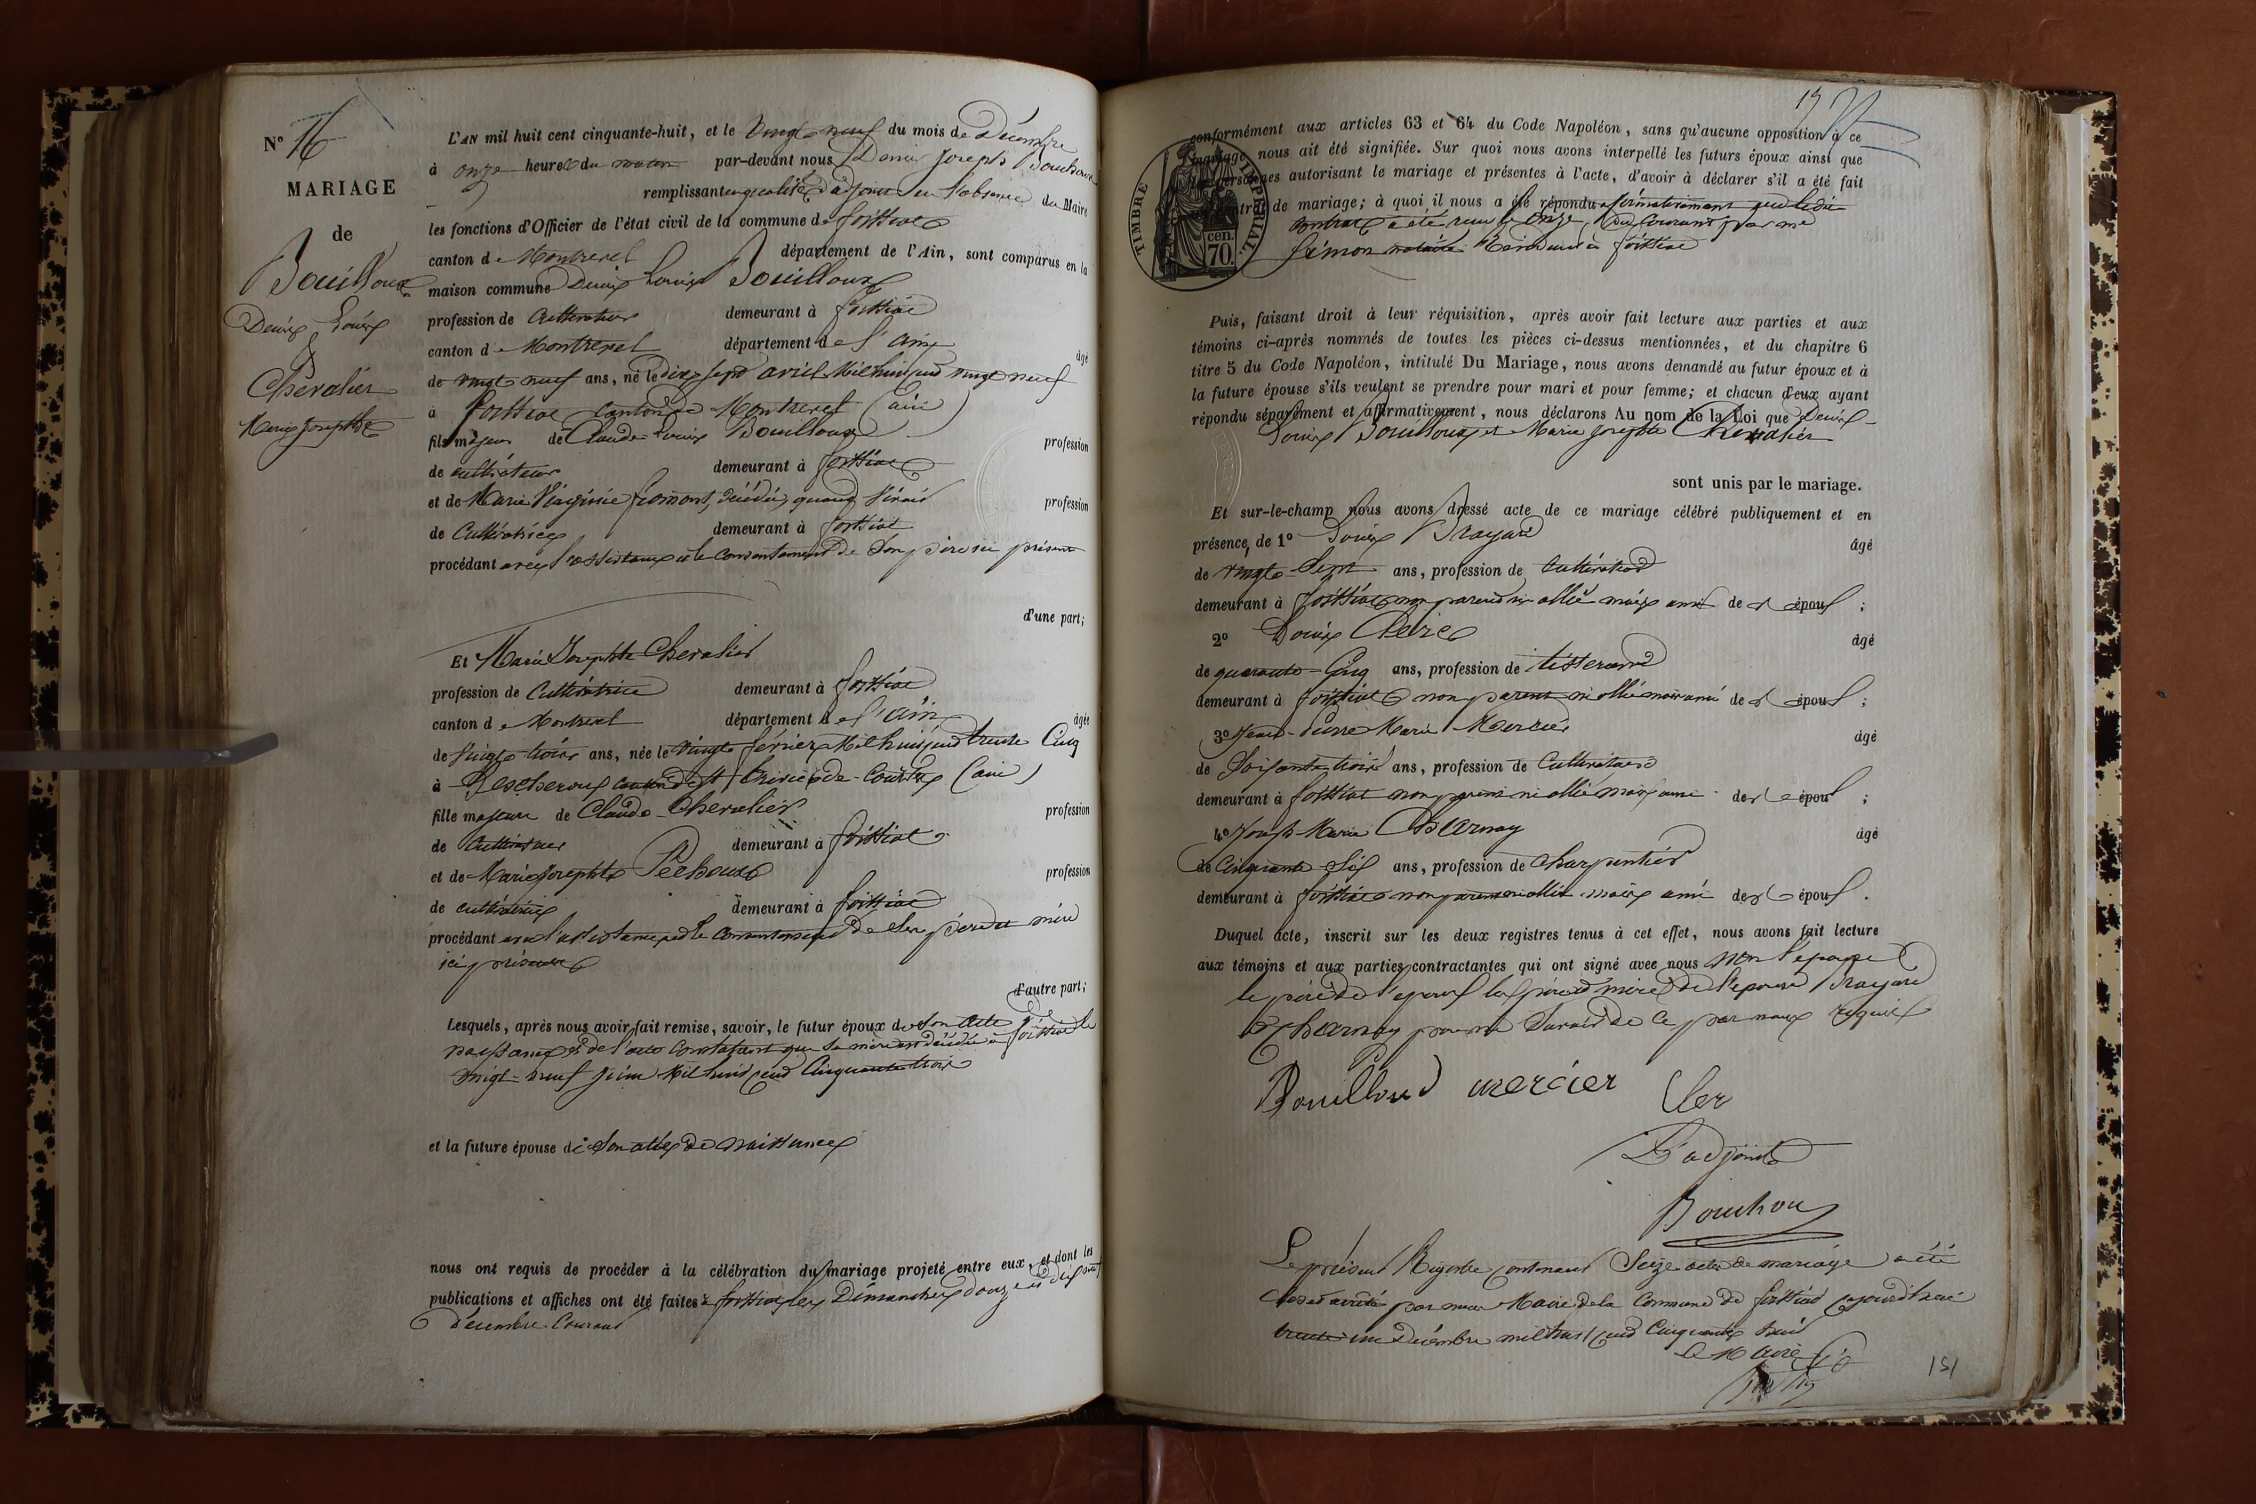 N° 16
MARIAGE
de
Bouilloux
Denis Louis
&
Chevalier
Marie Josephte
L'AN mil huit cent cinquante-huit, et le Vingt neuf du mois de Décembre
à onze heures du matin par-devant nous Denis Joseph Bouchoux
remplissant en qualité d'adjoint en l'absence du Maire
les fonctions d'Officier de l'état civil de la commune de foissiat
canton de Montrevel département de l'Ain, sont comparus en la
maison commune Denis Louis Bouilloux
profession de Cultivateur demeurant à foissiat
canton de Montrevel département de l'ain âgé
de vingt neuf ans, né le dix sept avril Mil huit cent vingt neuf
à foissiat canton de Montrevel (ain)
fils majeur de Claude Louis Bouilloux profession
de cultivateur demeurant à foissiat
et de Marie Virginie fromont, décédée, quand vivait profession
de Cultivatrice demeurant à foissiat
procédant avec l'assistance et le consentement de son père ici présent
d'une part;
Et Marie Josephte Chevalier
profession de Cultivatrice demeurant à foissiat
canton de Montrevel département de l'ain âgée
de Vingt trois ans, née le vingt février Mil huit cent trente Cinq
à Lescheroux canton de St trivier de Courtes (ain)
fille majeure de Claude Chevalier profession
de Cultivateur demeurant à foissiat
et de Marie Josephte Pechoux profession
de cultivatrice demeurant à foissiat
procédant avec l'assistance et le consentement de ses père et mère
ici présents
d'autre part;
Lesquels, après nous avoir fait remise, savoir, le futur époux de son acte de
naissance et de l'acte constatant que sa mère est décédée à foissiat le
vingt-neuf juin Mil huit cent Cinquante trois
et la future épouse de son acte de naissance
nous ont requis de procéder à la célébration du mariage projeté entre eux, et dont les
publications et affiches ont été faites à foissiat les Dimanches douze et dix neuf
décembre Courant
TIMBRE IMPÉRIAL
cen.
70.
conformément aux articles 63 et 64 du Code Napoléon, sans qu'aucune opposition à ce
mariage nous ait été signifiée. Sur quoi nous avons interpellé les futurs époux ainsi que
les personnes autorisant le mariage et présentes à l'acte, d'avoir à déclarer s'il a été fait
contrat de mariage; à quoi il nous a été répondu affirmativement que ledit
contrat a été reçu le onze du Courant par me
Simon notaire Résidant à foissiat
Puis, faisant droit à leur réquisition, après avoir fait lecture aux parties et aux
témoins ci-après nommés de toutes les pièces ci-dessus mentionnées, et du chapitre 6
titre 5 du Code Napoléon, intitulé Du Mariage, nous avons demandé au futur époux et à
la future épouse s'ils veulent se prendre pour mari et pour femme; et chacun d'eux ayant
répondu séparément et affirmativement, nous déclarons Au nom de la Loi que Denis
Louis Bouilloux et Marie Josephte Chevalier
sont unis par le mariage.
Et sur-le-champ nous avons dressé acte de ce mariage célébré publiquement et en
présence, de 1° Louis Brayard âgé
de vingt-Sept ans, profession de Cultivateur
demeurant à foissiat non parent ni allié mais ami de l'époux ;
2° Louis Clerc âgé
de quarante-Cinq ans, profession de tisserand
demeurant à foissiat non parent ni allié mais ami de l'époux ;
3° Jean-Pierre Marie Mercier âgé
de Soixante trois ans, profession de Cultivateur
demeurant à foissiat non parent ni allié mais ami de l'époux ;
4° Joseph Marie Charnay âgé
de Cinquante Six ans, profession de charpentier
demeurant à foissiat non parent ni allié mais ami de l'époux .
Duquel acte, inscrit sur les deux registres tenus à cet effet, nous avons fait lecture
aux témoins et aux parties contractantes qui ont signé avec nous non l'epouse
le père de l'epoux les père et mère de l'epouse Brayard
et Charnay pour ne Savoir de ce par nous requis
Bouilloud mercier Cler
L'adjoint
Bouchoux
Le présent Registre contenant Seize actes de mariage a été
clos et arrêté par nous Maire de la Commune de foissiat cejourd'hui
trente un Décembre mil huit cent Cinquante huit
Le Maire
151